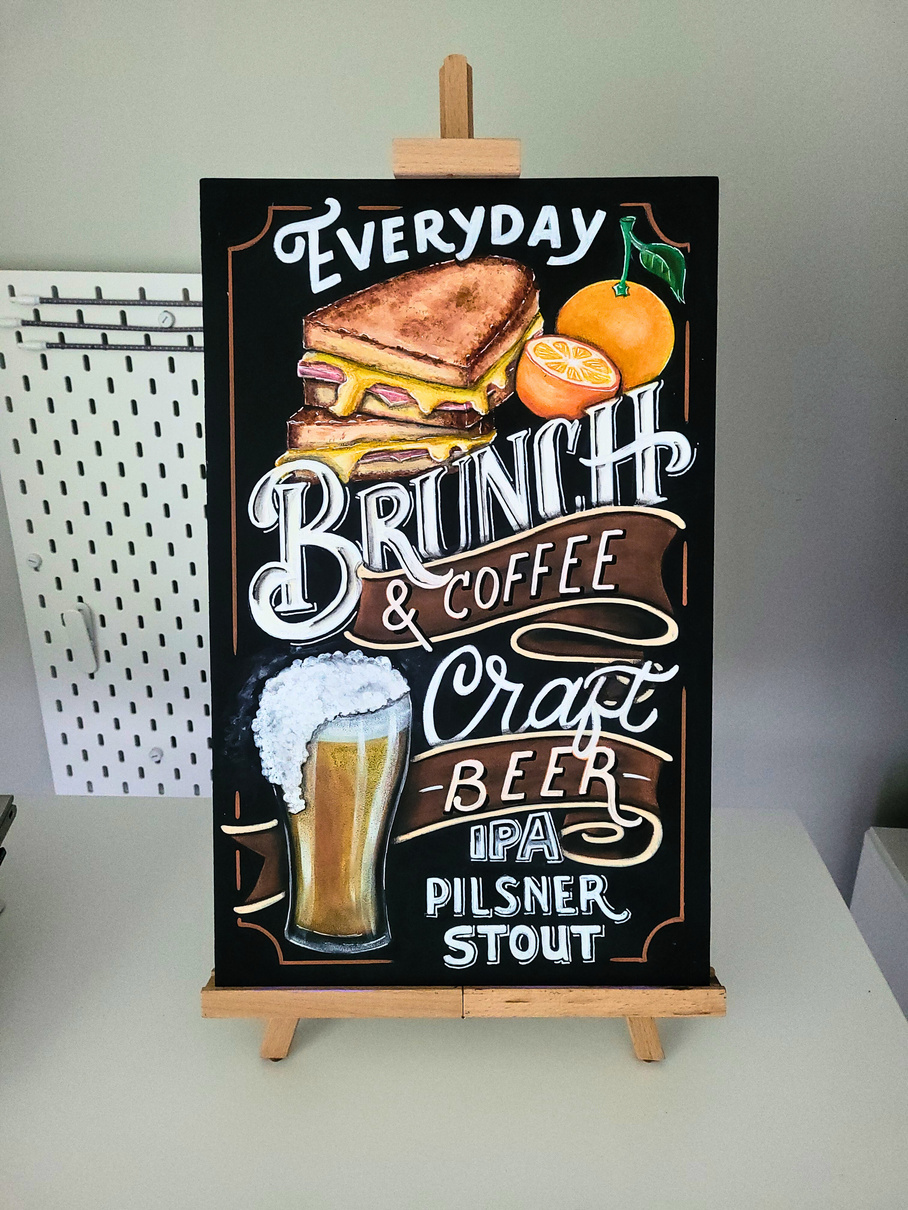 EVERYDAY
BRUNCH
& COFFEE
Craft
-BEER-
IPA
PILSNER
STOUT